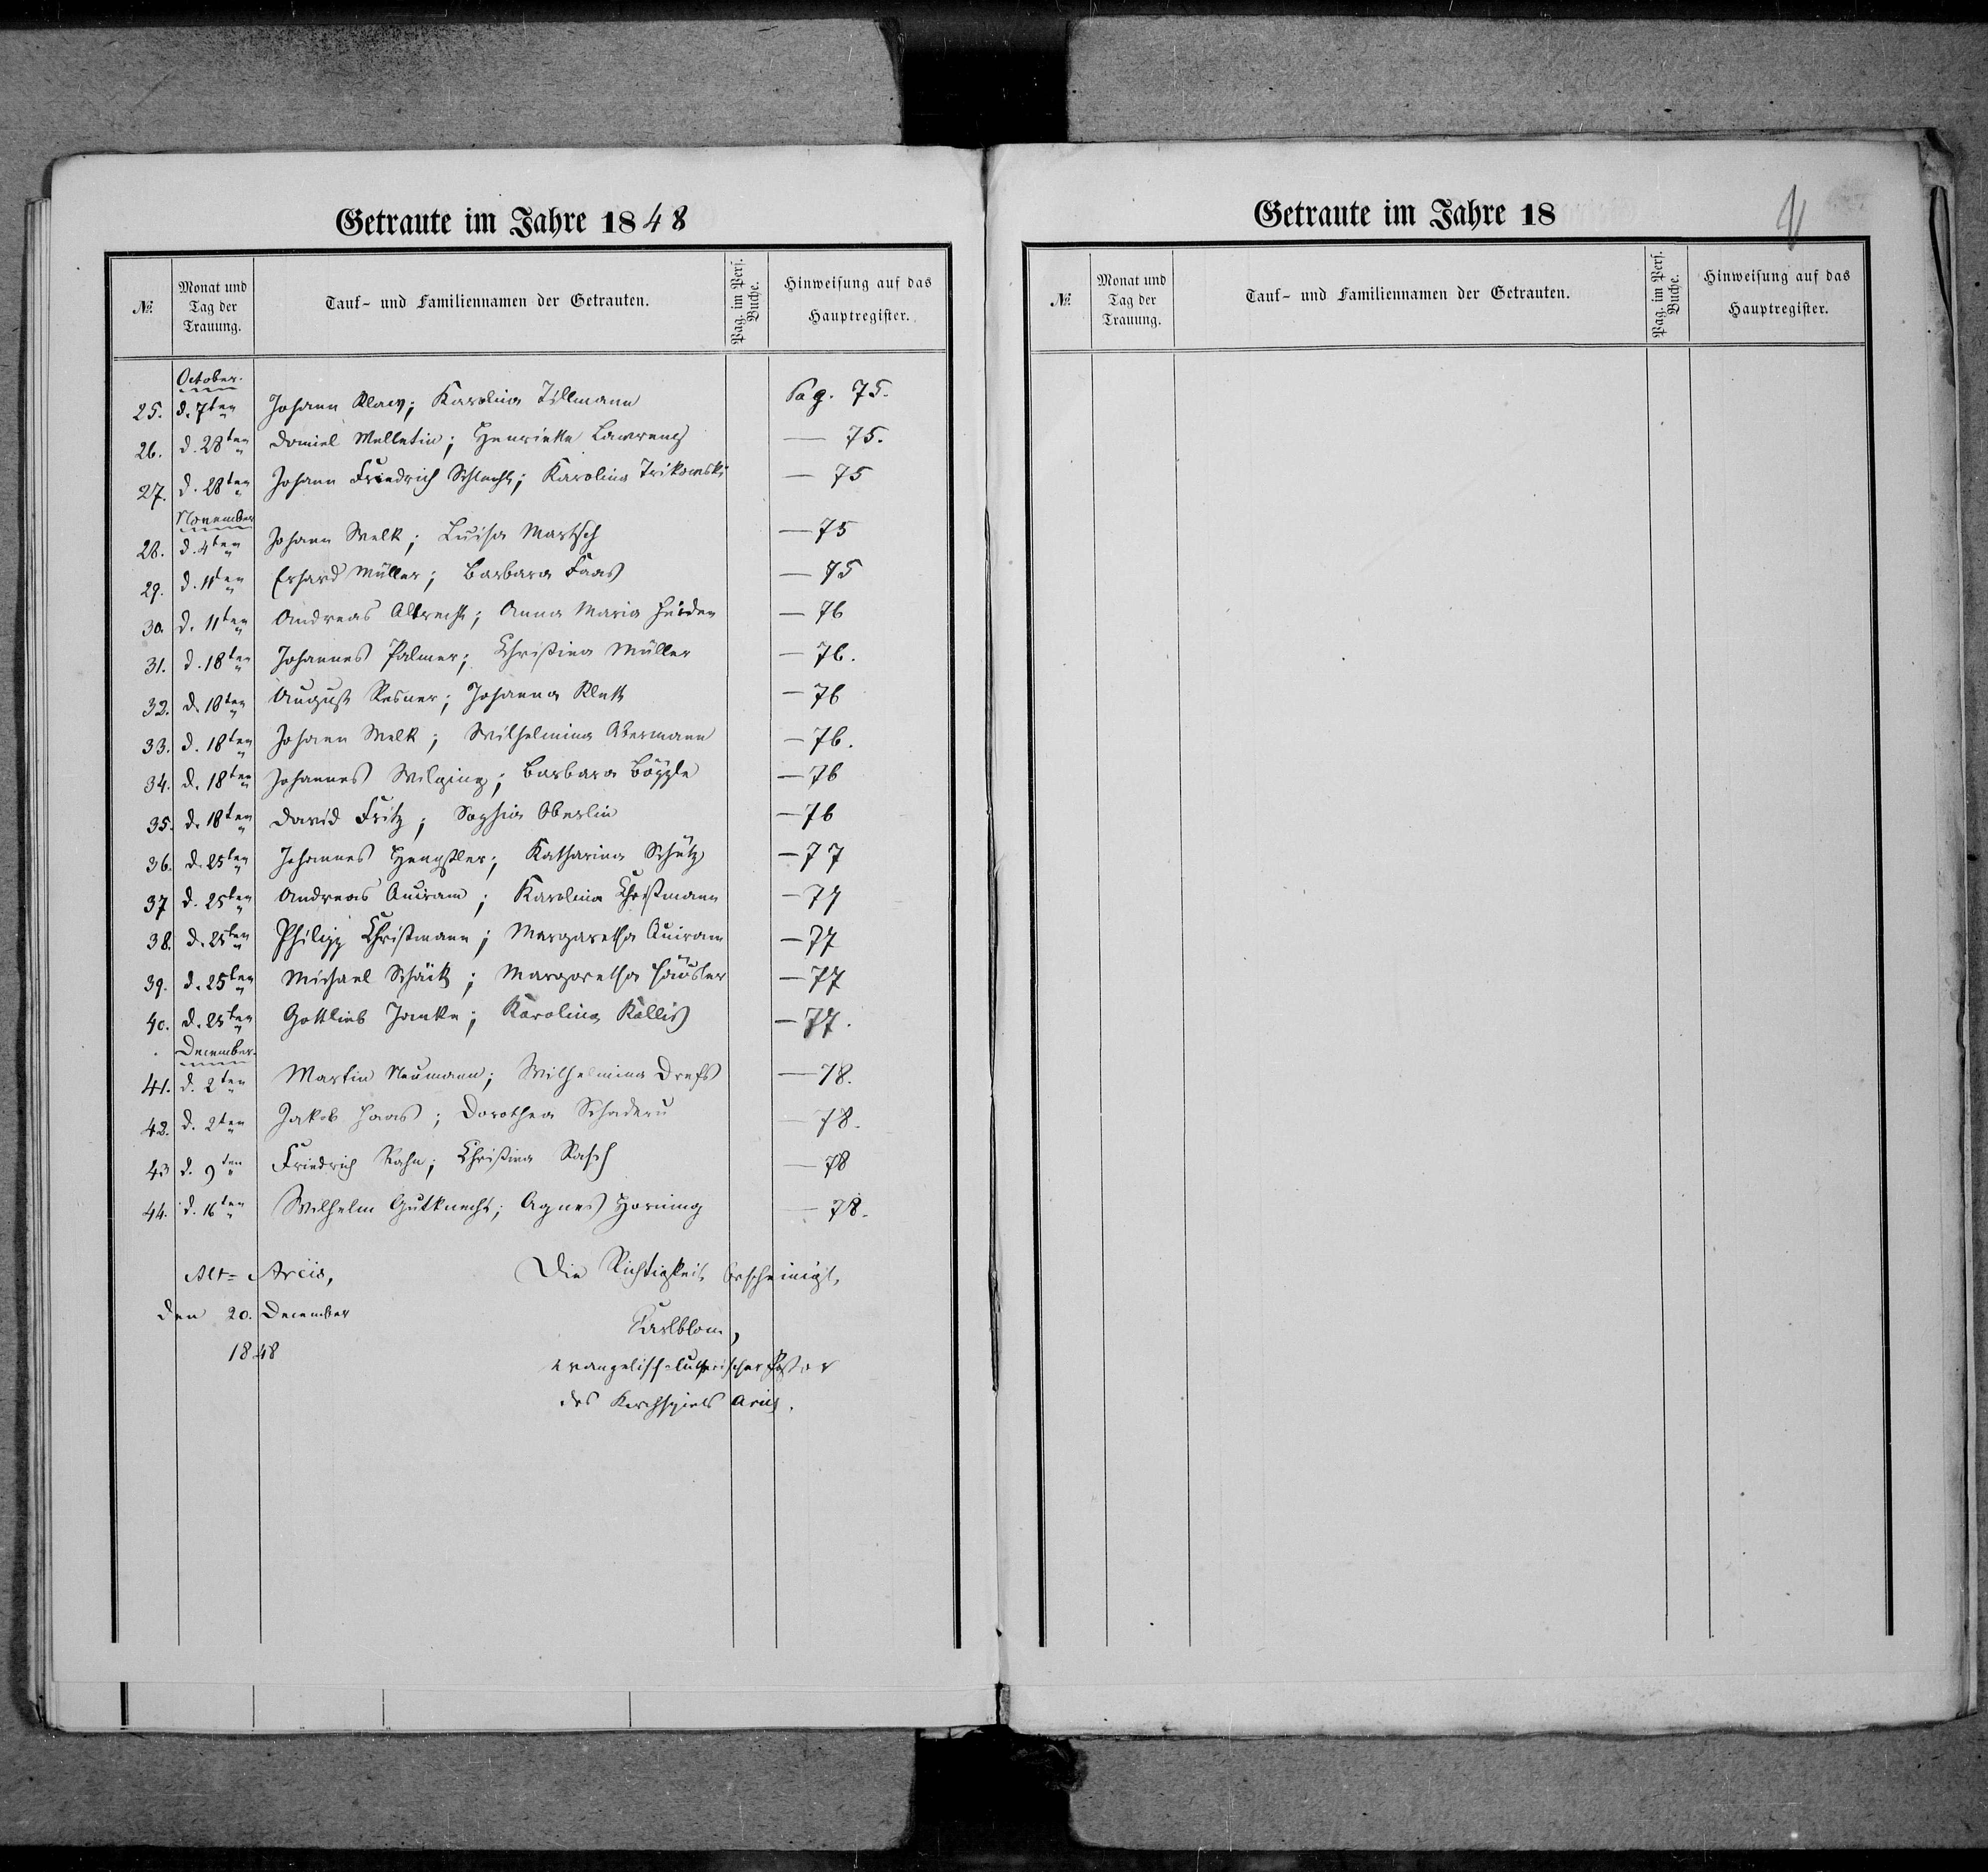 Getraute im Jahre 1848
№ Monat und Tag der Trauung. Tauf- und Familiennamen der Getrauten. Pag. im Pers. Buche. Hinweisung auf das Hauptregister.
October.
25. d. 7ten Johann Klaw; Karolina Tillmann Pag. 75.
26. d. 28ten Daniel Melletin; Henriette Lawrenz — 75.
27. d. 28ten Johann Friedrich Schlecht; Karolina Trikowski — 75
November
28. d. 4ten Johann Welk; Luisa Martsch — 75
29. d. 11ten Erhard Müller; Barbara Faas — 75
30. d. 11ten Andreas Albrecht; Anna Maria — 76
31. d. 18ten Johannes Palmer; Christina Müller — 76.
32. d. 18ten August Resner; Johanna Klett — 76
33. d. 18ten Johann Welk; Wilhelmina Akermann — 76.
34. d. 18ten Johannes Barbara Böpple — 76
35. d. 18ten David Fritz; Sophia Oberlin — 76
36. d. 25ten Johannes Hengstler; Katharina Schütz — 77
37 d. 25ten Andreas Quiram; Karolina Christmann — 77
38. d. 25ten Philipp Christmann; Margaretha Quiram — 77
39. d. 25ten Michael Schäik; Margaretha Häusler — 77
40. d. 25ten Gottlieb Janke; Karolina Kallis — 77.
December.
41. d. 2ten Martin Neumann; Wilhelmina Drefs — 78.
42. d. 2ten Jakob Haas; Dorothea — 78.
43 d. 9ten Friedrich Rahn; Christina Rasch — 78
44. d. 16ten Wilhelm Gutknecht; Agnes Horning — 78.
Alt-Arcis, Die Richtigkeit bescheinigt,
den 20. December Karlblom,
1848 evangelisch-lutherischer Pastor
des Kirchspiels Arcis.
Getraute im Jahre 18
№ Monat und Tag der Trauung. Tauf- und Familiennamen der Getrauten. Pag. im Pers. Buche. Hinweisung auf das Hauptregister.